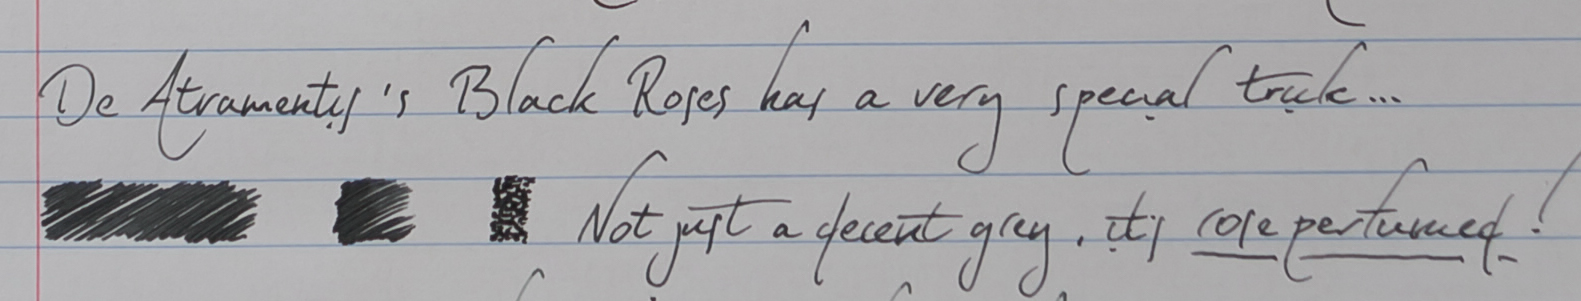 De Atramentis's Black Roses has a very special trick...
Not just a decent grey, it's rose perfumed!